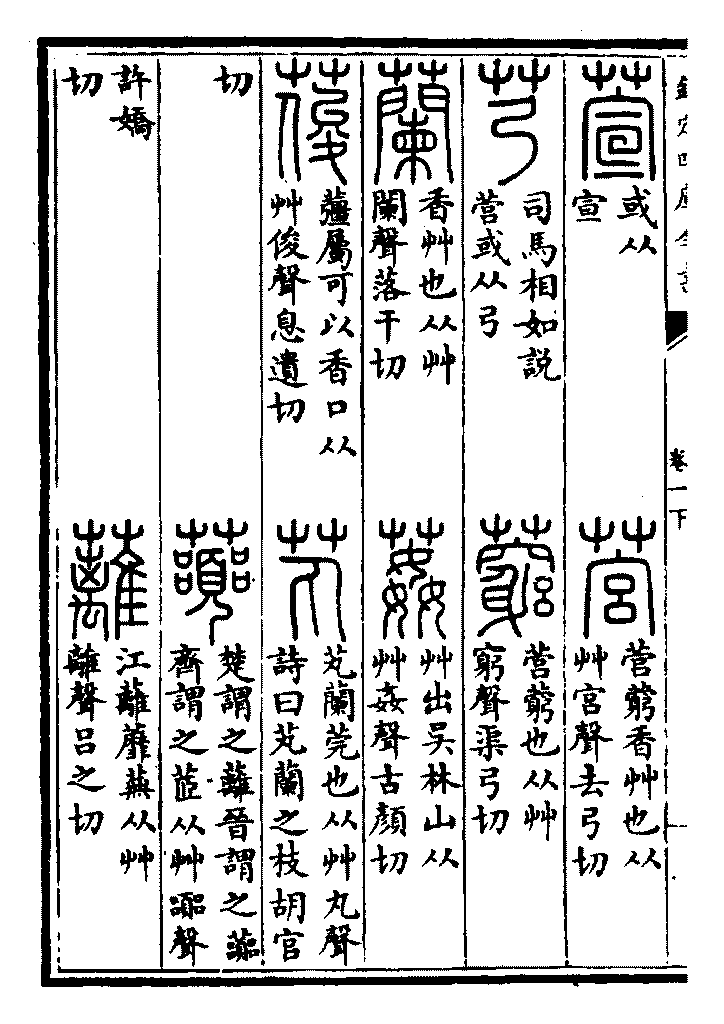 欽定四庫全書
卷一下
萱
或从
宣
营
营藭香艸也从
艸宫聲去弓切
芎
司馬相如説
营或从弓
藭
营藭也从艸
窮聲渠弓切
蘭
香艸也从艸
闌聲落干切
葌
艸出吳林山从
艸姦聲古顔切
葰
䕬屬可以香口从
艸俊聲息遺切
芄
芄蘭莞也从艸丸聲
詩曰芄蘭之枝胡官
切
虈
楚謂之蘺晉謂之虈
齊謂之茝从艸嚻聲
許嬌
切
蘺
江蘺蘼蕪从艸
離聲吕之切